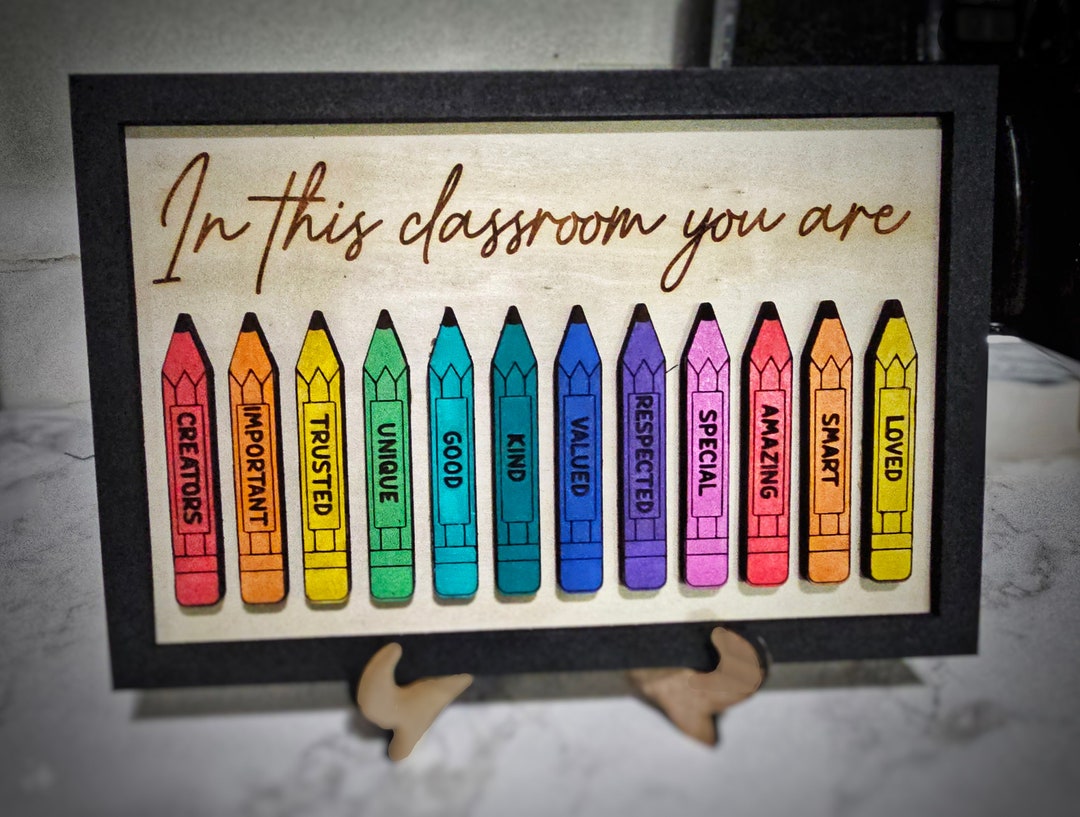 In this classroom you are
CREATORS
IMPORTANT
TRUSTED
UNIQUE
GOOD
KIND
VALUED
RESPECTED
SPECIAL
AMAZING
SMART
LOVED